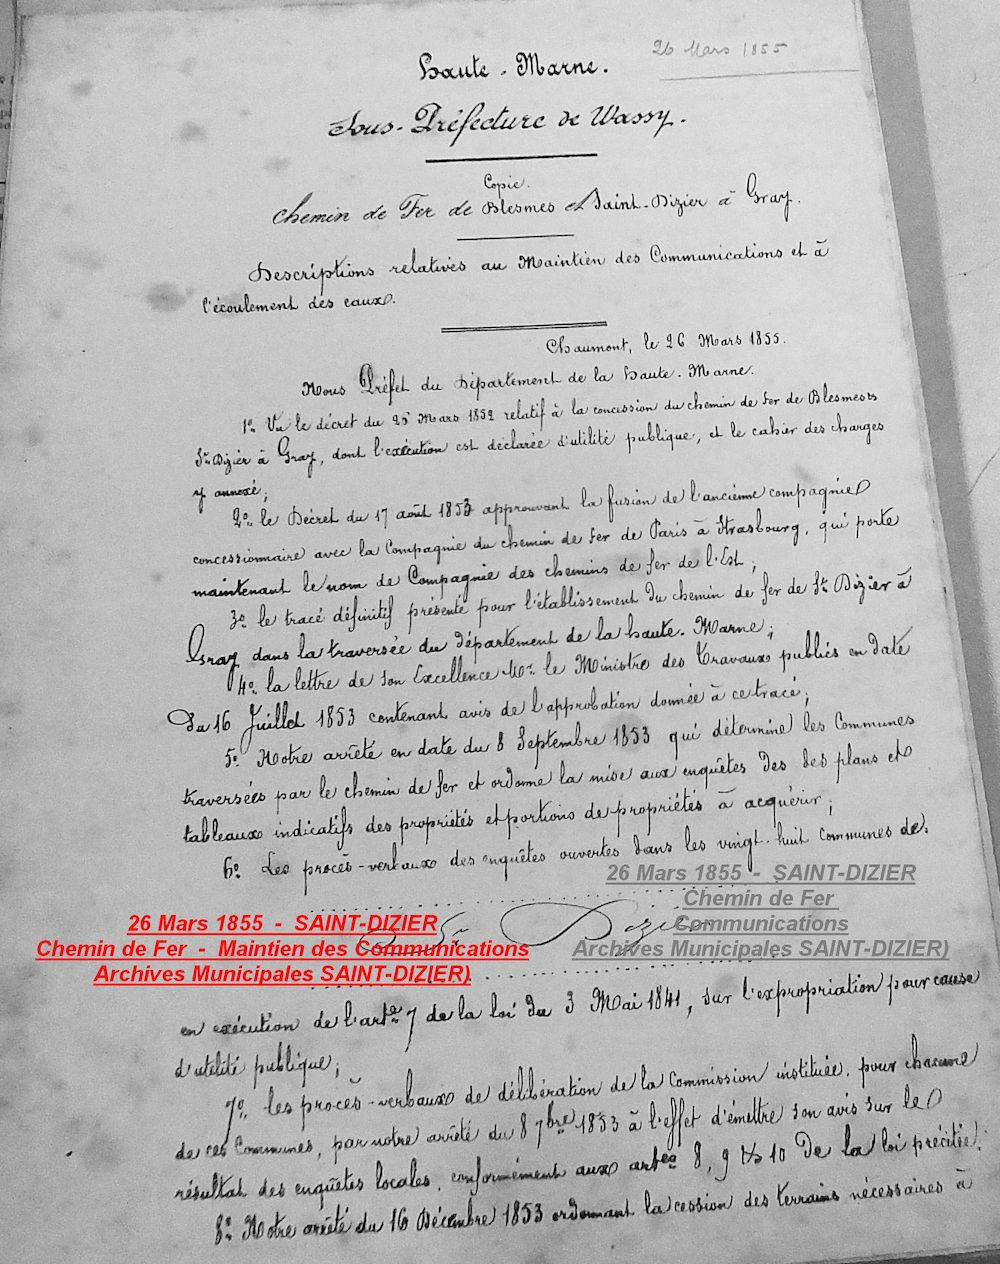 26 Mars 1855
Haute-Marne.
Sous-Préfecture de Wassy.
Copie.
Chemin de Fer de Blesmes et Saint-Dizier à Gray.
Descriptions relatives au Maintien des Communications et à
l'écoulement des eaux.
Chaumont, le 26 Mars 1855.
Nous Préfet du Département de la Haute-Marne.
1º Vu le décret du 25 Mars 1852 relatif à la concession du chemin de fer de Blesmes et
St Dizier à Gray, dont l'exécution est déclarée d'utilité publique, et le cahier des charges
y annexé;
2º le Décret du 17 août 1853 approuvant la fusion de l'ancienne compagnie
concessionnaire avec la Compagnie du chemin de fer de Paris à Strasbourg, qui porte
maintenant le nom de Compagnie des chemins de fer de l'Est;
3º le tracé définitif présenté pour l'établissement du chemin de fer de St Dizier à
Gray dans la traversée du département de la haute-Marne;
4º la lettre de son Excellence Mr le Ministre des Travaux publics en date
du 16 Juillet 1853 contenant avis de l'approbation donnée à ce tracé;
5º Notre arrêté en date du 8 Septembre 1853 qui détermine les Communes
traversées par le chemin de fer et ordonne la mise aux enquêtes des des plans et
tableaux indicatifs des propriétés et portions de propriétés à acquérir;
6º Les procès-verbaux des enquêtes ouvertes dans les vingt-huit communes de.
St Dizier
26 Mars 1855 - SAINT-DIZIER
Chemin de Fer
Communications
Archives Municipales SAINT-DIZIER)
26 Mars 1855 - SAINT-DIZIER
Chemin de Fer - Maintien des Communications
Archives Municipales SAINT-DIZIER)
en exécution de l'arte 7 de la loi du 3 Mai 1841, sur l'expropriation pour cause
d'utilité publique;
7º les procès-verbaux de délibération de la Commission instituée, pour chacune
de ces Communes, par notre arrêté du 8 7bre 1853 à l'effet d'émettre son avis sur le
résultat des enquêtes locales, conformément aux artes 8, 9 & 10 De la loi précitée;
8º Notre arrêté du 16 Décembre 1853 ordonnant la cession des terrains nécessaires à